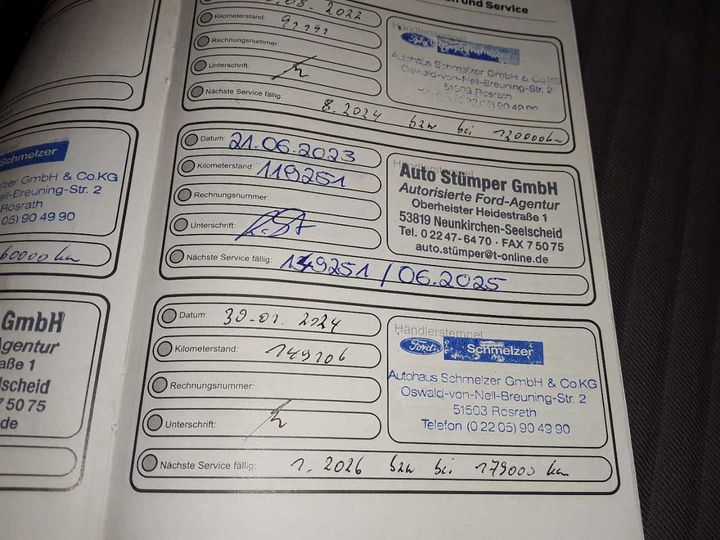 und Service
.08.2022
Kilometerstand:
Rechnungsnummer:
Unterschrift:
Nächste Service fällig:
8.2024 bzw bei 120000 km
Händlerstempel
Ford Schmelzer
Autohaus Schmelzer GmbH & Co.KG
Oswald-von-Nell-Breuning-Str. 2
51503 Rösrath
90 49 90
Datum: 21.06.2023
Kilometerstand: 119251
Rechnungsnummer:
Unterschrift:
Nächste Service fällig: 149251 / 06.2025
Händlerstempel
Auto Stümper GmbH
Autorisierte Ford-Agentur
Oberheister Heidestraße 1
53819 Neunkirchen-Seelscheid
Tel. 0 22 47-64 70 · FAX 7 50 75
auto.stümper@t-online.de
Datum: 30.01.2024
Kilometerstand: 149106
Rechnungsnummer:
Unterschrift:
Nächste Service fällig: 1.2026 bzw bei 179000 km
Händlerstempel
Ford Schmelzer
Autohaus Schmelzer GmbH & Co KG
Oswald-von-Nell-Breuning-Str. 2
51503 Rösrath
Telefon (0 22 05) 90 49 90
Schmelzer
zer GmbH & Co.KG
ell-Breuning-Str. 2
Rösrath
05) 90 49 90
60000 km
GmbH
Agentur
aße 1
elscheid
7 50 75
.de